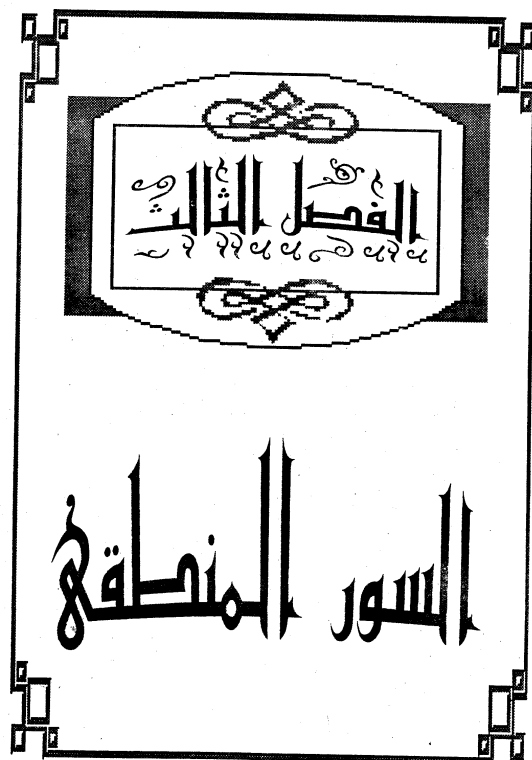 الفصل الثالث
السور المنطقي